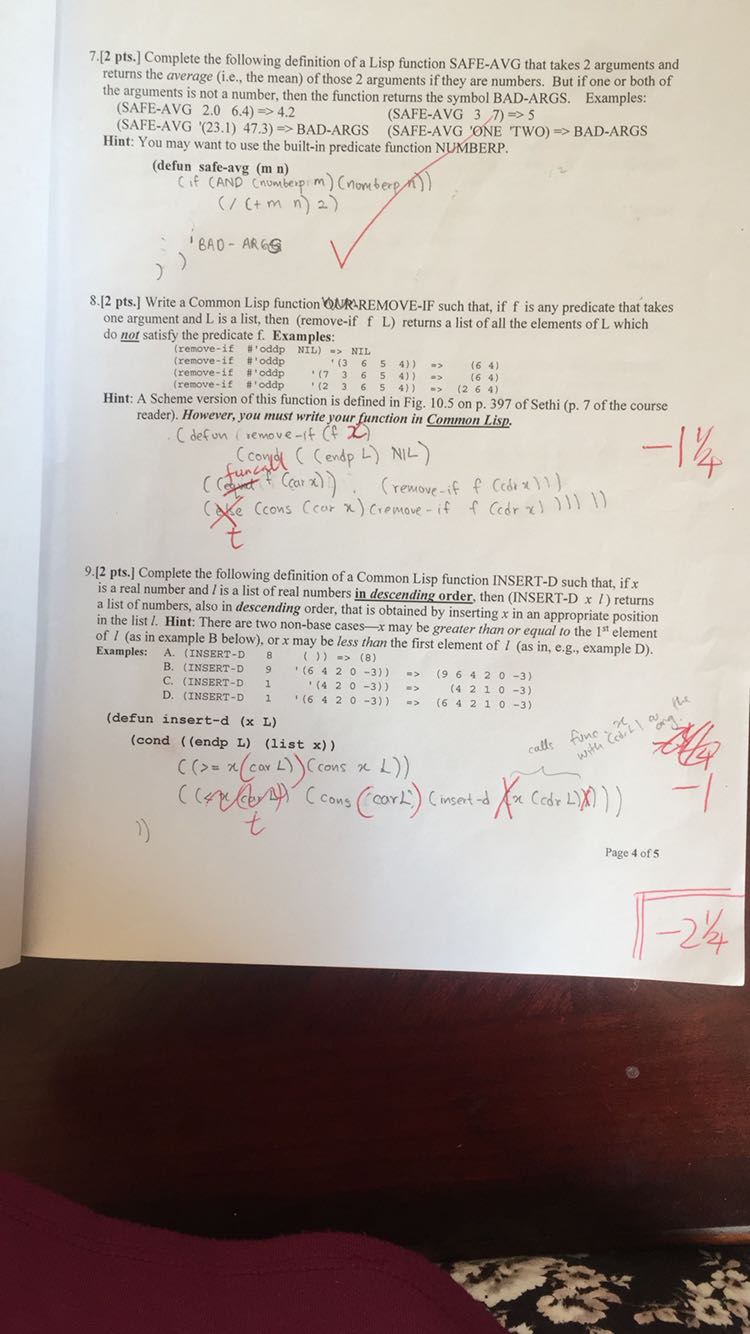 7.[2 pts.] Complete the following definition of a Lisp function SAFE-AVG that takes 2 arguments and
returns the average (i.e., the mean) of those 2 arguments if they are numbers. But if one or both of
the arguments is not a number, then the function returns the symbol BAD-ARGS. Examples:
(SAFE-AVG 2.0 6.4) => 4.2 (SAFE-AVG 3 7) => 5
(SAFE-AVG '(23.1) 47.3) => BAD-ARGS (SAFE-AVG 'ONE 'TWO) => BAD-ARGS
Hint: You may want to use the built-in predicate function NUMBERP.
(defun safe-avg (m n)
(if (AND (numberp m) (nomberp n))
(/ (+ m n) 2)
'BAD-ARGS
) )
8.[2 pts.] Write a Common Lisp function OUR-REMOVE-IF such that, if f is any predicate that takes
one argument and L is a list, then (remove-if f L) returns a list of all the elements of L which
do not satisfy the predicate f. Examples:
(remove-if #'oddp NIL) => NIL
(remove-if #'oddp '(3 6 5 4)) => (6 4)
(remove-if #'oddp '(7 3 6 5 4)) => (6 4)
(remove-if #'oddp '(2 3 6 5 4)) => (2 6 4)
Hint: A Scheme version of this function is defined in Fig. 10.5 on p. 397 of Sethi (p. 7 of the course
reader). However, you must write your function in Common Lisp.
(defun (remove-if (f x)
-1 1/4
(cond ( (endp L) NIL)
funcall
(( f (car x)) (remove-if f (cdr x)))
(else (cons (car x) (remove-if f (cdr x) ))))) ))
t
9.[2 pts.] Complete the following definition of a Common Lisp function INSERT-D such that, if x
is a real number and l is a list of real numbers in descending order, then (INSERT-D x l) returns
a list of numbers, also in descending order, that is obtained by inserting x in an appropriate position
in the list l. Hint: There are two non-base cases—x may be greater than or equal to the 1st element
of l (as in example B below), or x may be less than the first element of l (as in, e.g., example D).
Examples: A. (INSERT-D 8 ( )) => (8)
B. (INSERT-D 9 '(6 4 2 0 -3)) => (9 6 4 2 0 -3)
C. (INSERT-D 1 '(4 2 0 -3)) => (4 2 1 0 -3)
D. (INSERT-D 1 '(6 4 2 0 -3)) => (6 4 2 1 0 -3)
(defun insert-d (x L)
calls func x the
with (cdr L) as arg.
(cond ((endp L) (list x))
((>= x (car L)) (cons x L))
((< x (car L)) (cons (car L) (insert-d (x (cdr L)))))
-1
t
))
Page 4 of 5
-2 1/4